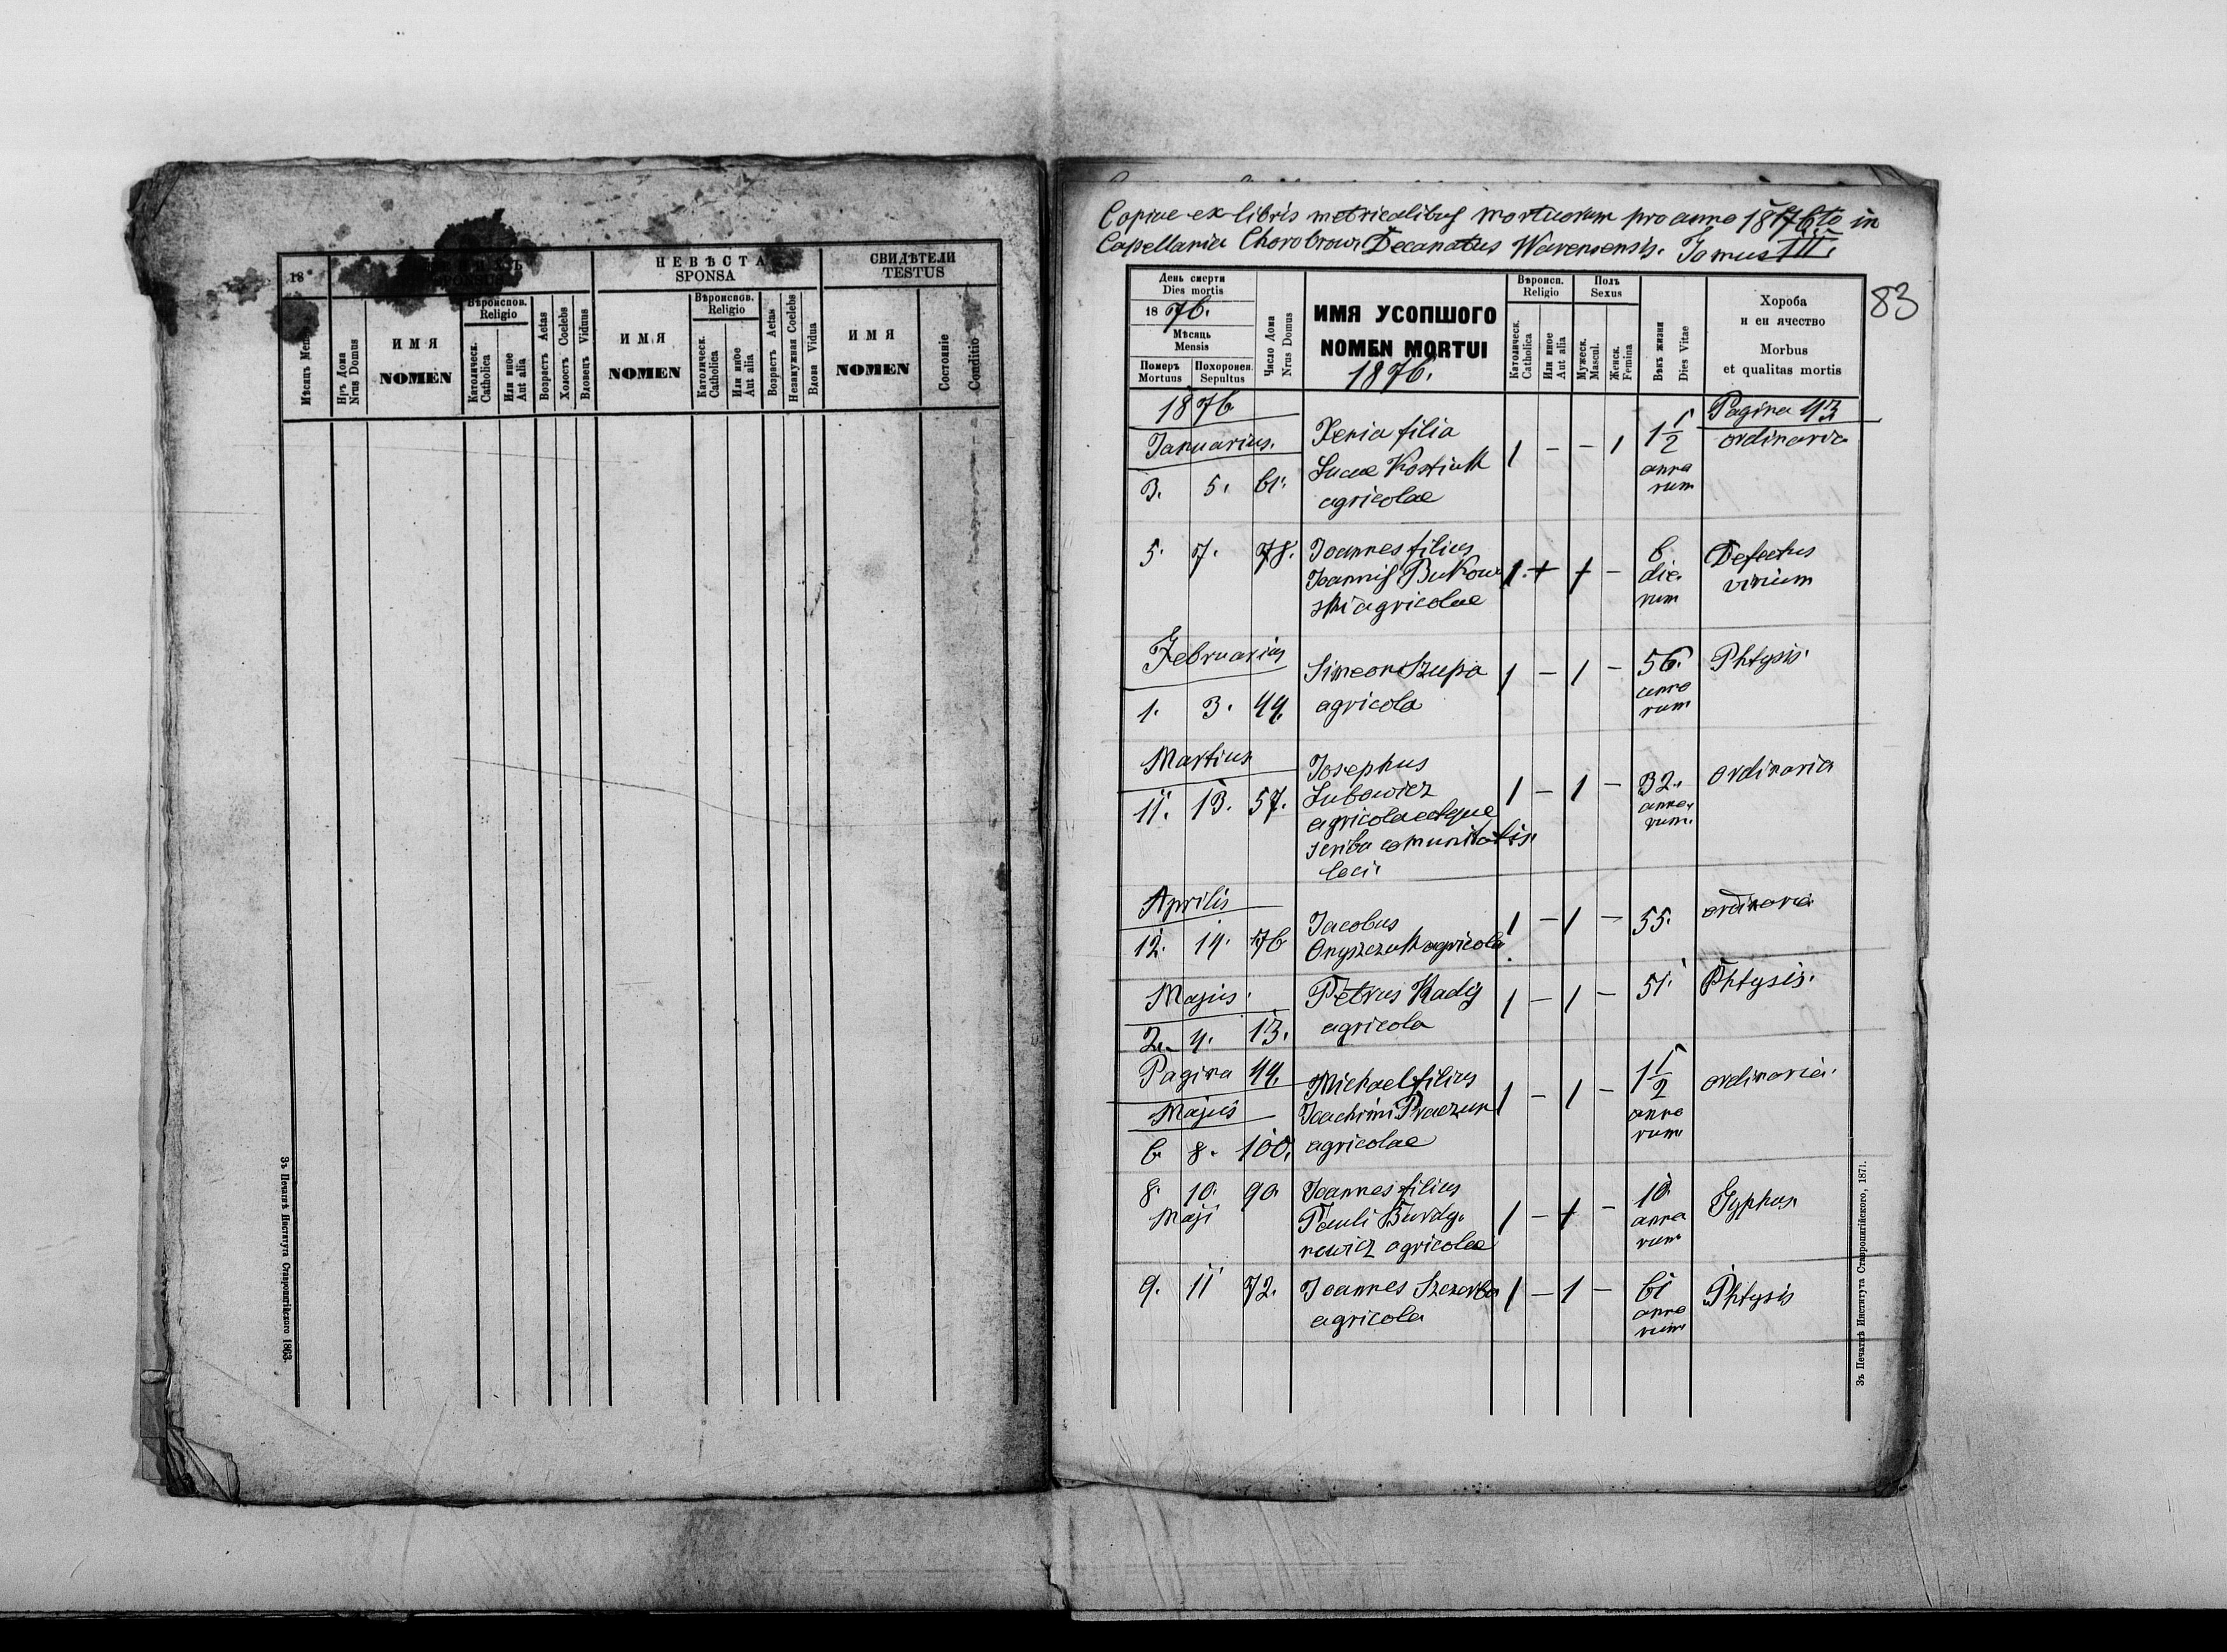 18
НЕВѢСТА
SPONSA
СВИДѢТЕЛИ
TESTUS
Мѣсяцъ
Нръ Дома
Nrus Domus
ИМЯ
NOMEN
Вѣроиспов.
Religio
Католическ.
Catholica
Или иное
Aut alia
Возрастъ Aetas
Холостъ Coelebs
Вдовецъ Viduus
ИМЯ
NOMEN
Вѣроиспов.
Religio
Католическ.
Catholica
Или иное
Aut alia
Возрастъ Aetas
Незамужняя Coelebs
Вдова Vidua
ИМЯ
NOMEN
Состояніе
Conditio
Зъ Печатнѣ Института Ставропигійского 1863.
Copiae ex libris metricalibus mortuorum pro anno 1876to in
Capellania Chorobrow Decanatus Warensensis. Tomus III.
83
День смерти
Dies mortis
1876.
Мѣсяць
Mensis
Померъ
Mortuus
Похоронен.
Sepultus
Число Дома
Nrus Domus
ИМЯ УСОПШОГО
NOMEN MORTUI
1876.
Вѣроисп.
Religio
Католическ.
Catholica
Или иное
Aut alia
Полъ
Sexus
Мужеск.
Mascul.
Женск.
Femina
Вѣкъ жизни
Dies Vitae
Хороба
и еи ячество
Morbus
et qualitas mortis
1876
Pagina 43
Januarius.
3. 5. 61. Xenia filia
Lucae Kostiuk
agricolae
1 - - 1 1 1/2
anno
rum
ordinaria
5. 7. 78. Joannes filius
Joannis Bukow
ski agricolae
1. + 1 - 6
die
rum
Defectus
virium
Februarius
1. 3. 44. Simeon Szupa
agricola
1 - 1 - 56.
anno
rum
Phtysis.
Martius
11. 13. 57. Josephus
Lubowicz
agricola atque
scriba comunitatis
loci.
1 - 1 - 32.
anno
rum.
ordinaria
Aprilis
12. 14. 76 Jacobus
Onyszczuk agricola
1 - 1 - 55. ordinaria
Majus.
2. 4. 13. Petrus Kadij
agricola
1 - 1 - 51. Phtysis.
Pagina 44.
Majus
6 8. 100. Michael filius
Joachimi Praczun
agricolae
1 - 1 - 1 1/2
anno
rum
ordinaria.
8. 10. 90. Joannes filius
Maji
Pauli Burdy
newicz agricolae
1 - 1 - 10
anno
rum
Typhus
9. 11 72. Joannes Szczerba
agricola
1 - 1 - 61
anno
rum
Phtysis
Зъ Печатнѣ Института Ставропигійского, 1871.